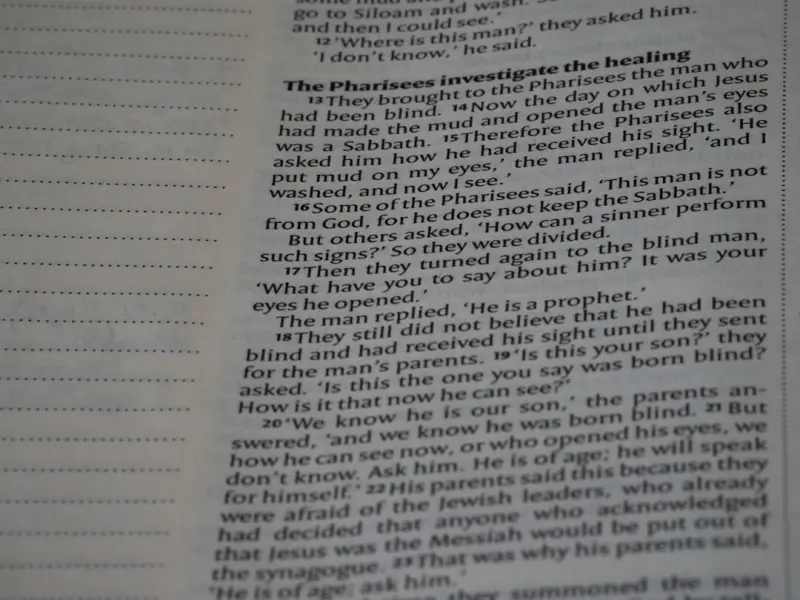 some mud and
go to Siloam and wash. So
and then I could see.'
12 'Where is this man?' they asked him.
'I don't know,' he said.
The Pharisees investigate the healing
13 They brought to the Pharisees the man who
had been blind. 14 Now the day on which Jesus
had made the mud and opened the man's eyes
was a Sabbath. 15 Therefore the Pharisees also
asked him how he had received his sight. 'He
put mud on my eyes,' the man replied, 'and I
washed, and now I see.'
16 Some of the Pharisees said, 'This man is not
from God, for he does not keep the Sabbath.'
But others asked, 'How can a sinner perform
such signs?' So they were divided.
17 Then they turned again to the blind man,
'What have you to say about him? It was your
eyes he opened.'
The man replied, 'He is a prophet.'
18 They still did not believe that he had been
blind and had received his sight until they sent
for the man's parents. 19 'Is this your son?' they
asked. 'Is this the one you say was born blind?
How is it that now he can see?'
20 'We know he is our son,' the parents an-
swered, 'and we know he was born blind. 21 But
how he can see now, or who opened his eyes, we
don't know. Ask him. He is of age; he will speak
for himself.' 22 His parents said this because they
were afraid of the Jewish leaders, who already
had decided that anyone who acknowledged
that Jesus was the Messiah would be put out of
the synagogue. 23 That was why his parents said,
'He is of age; ask him.'
they summoned the man